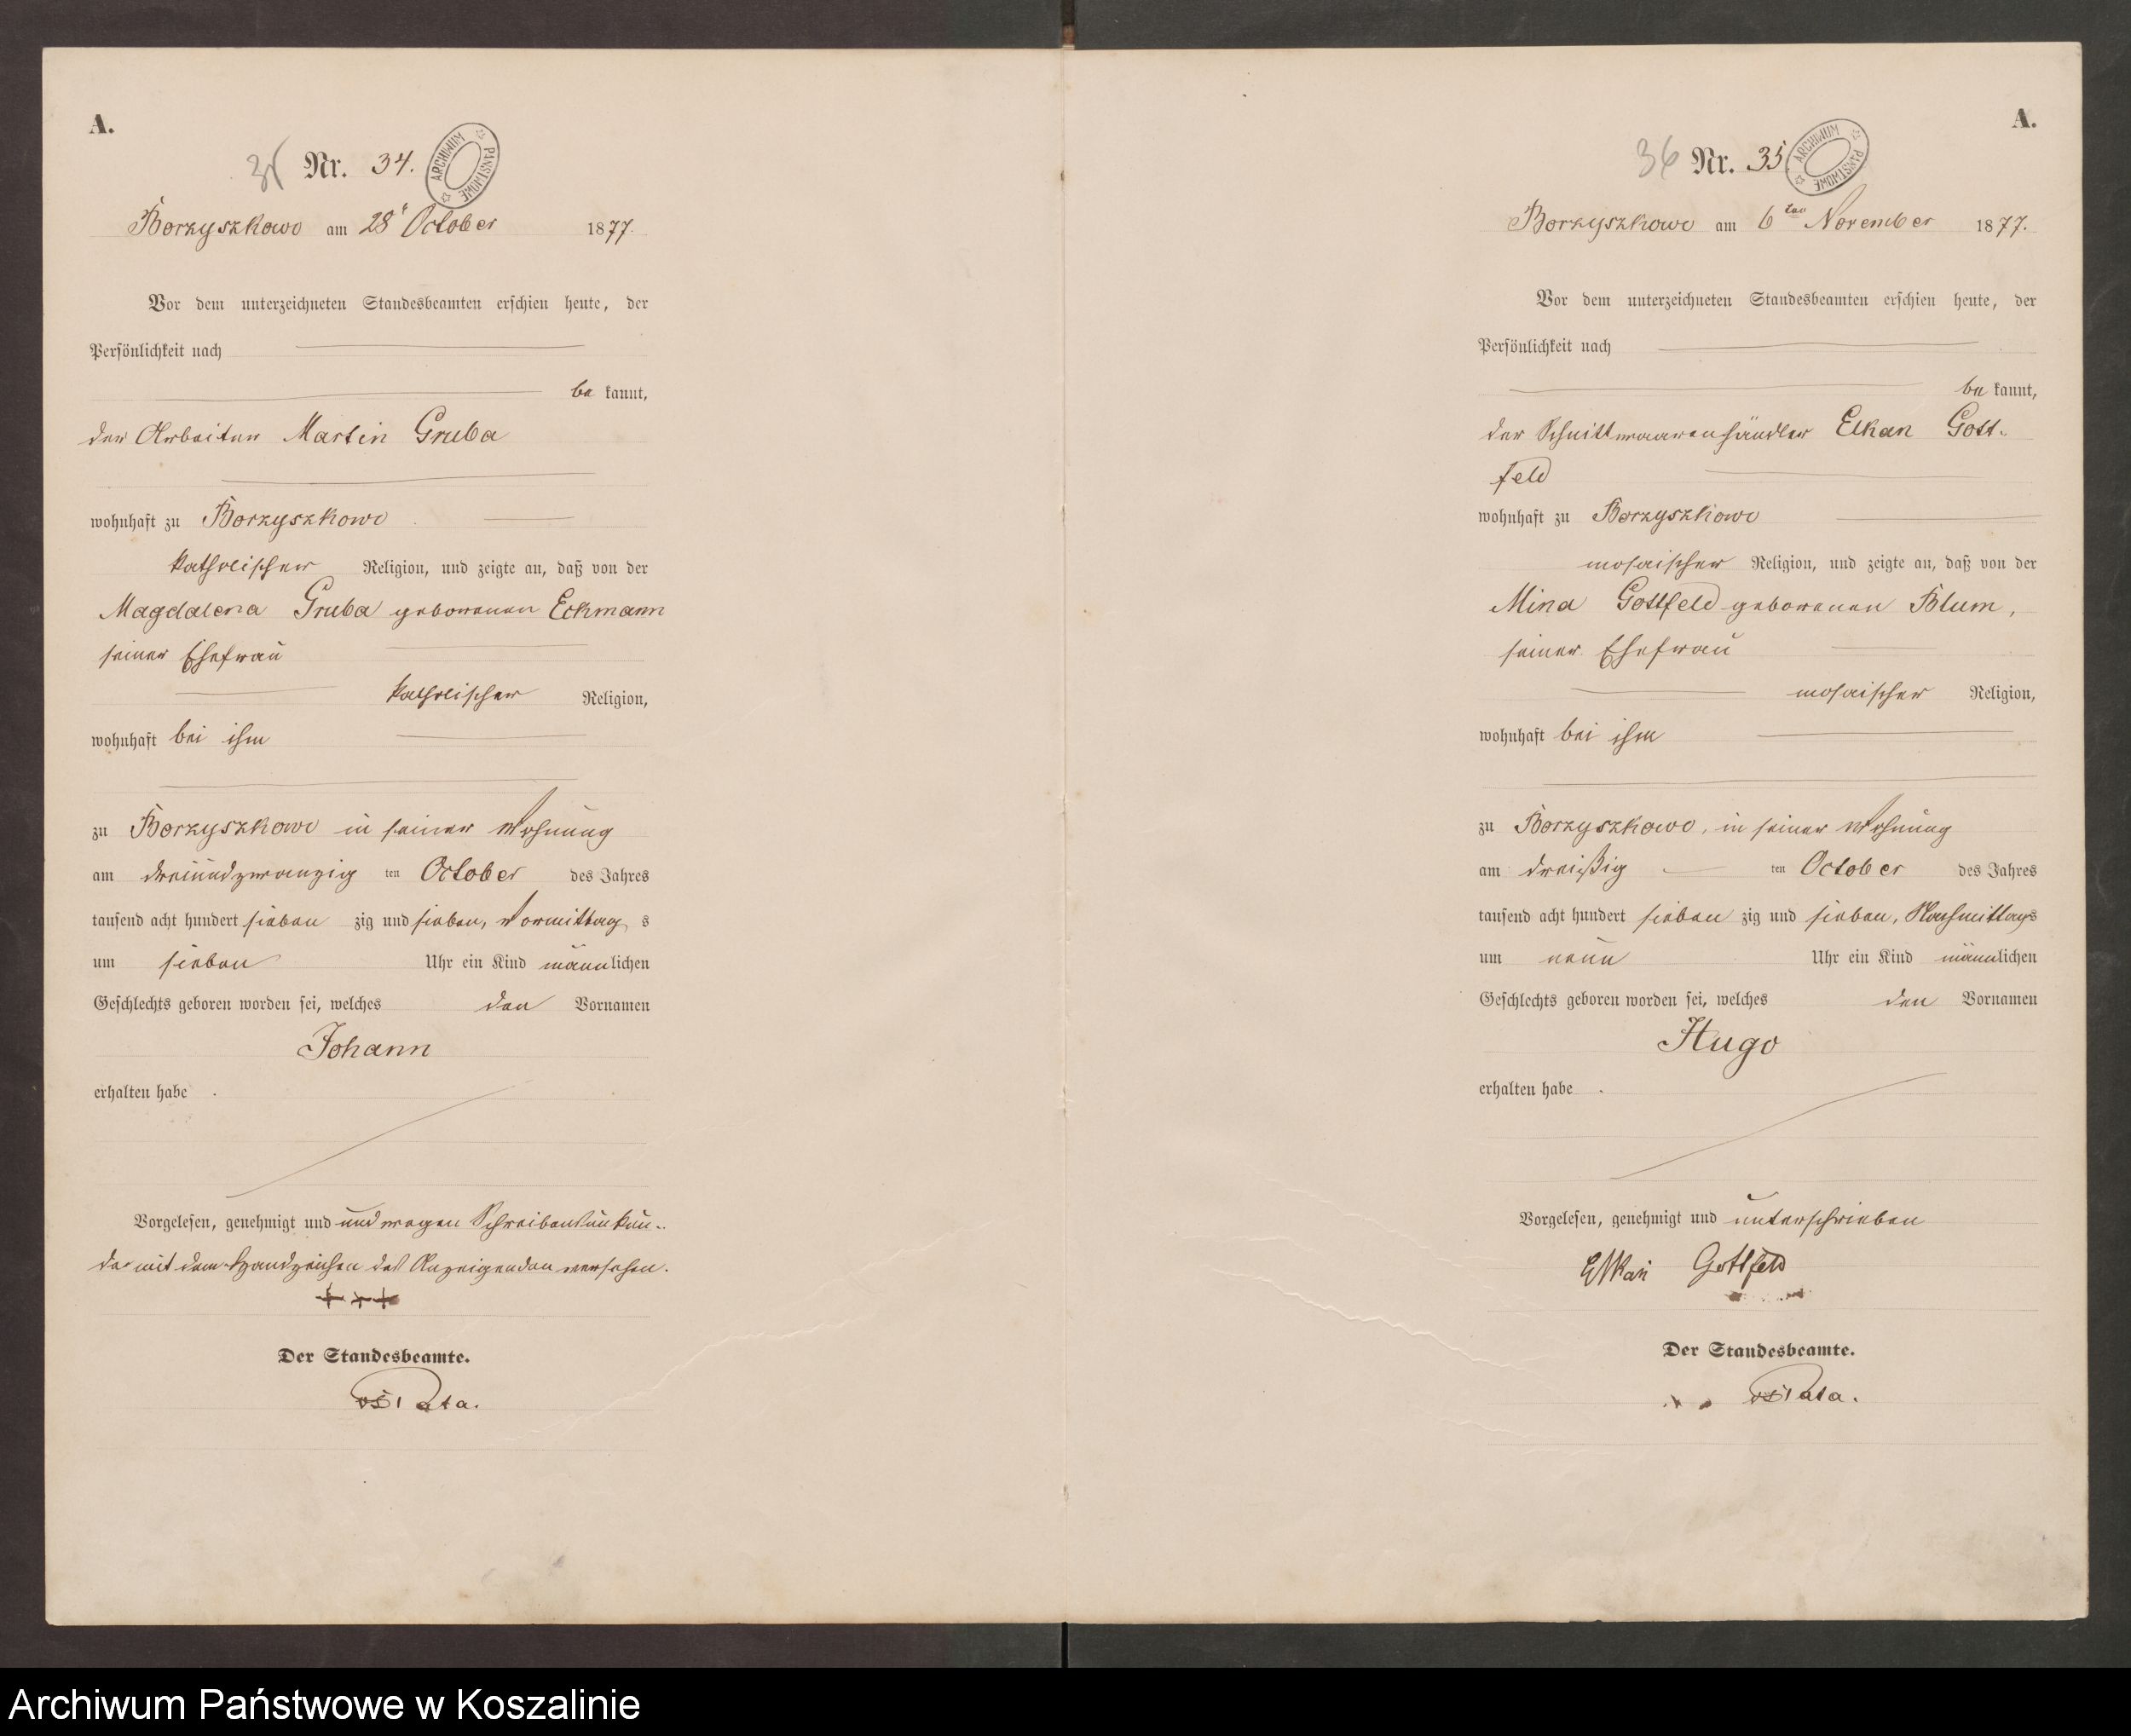 A.
35 Nr. 34.
ARCHIWUM PAŃSTWOWE
Borzyszkowo am 28' October 1877.
Vor dem unterzeichneten Standesbeamten erschien heute, der
Persönlichkeit nach
be kannt,
der Arbeiter Martin Gruba
wohnhaft zu Borzyszkowo
katholischer Religion, und zeigte an, daß von der
Magdalena Gruba geborenen Eckmann
seiner Ehefrau
katholischer Religion,
wohnhaft bei ihm
zu Borzyszkowo in seiner Wohnung
am dreiundzwanzig ten October des Jahres
tausend acht hundert sieben zig und sieben, Vormittag s
um sieben Uhr ein Kind männlichen
Geschlechts geboren worden sei, welches den Vornamen
Johann
erhalten habe .
Vorgelesen, genehmigt und und wegen Schreibensunkun-
de mit dem Handzeichen des Anzeigenden versehen.
+++
Der Standesbeamte.
A.
36 Nr. 35
ARCHIWUM PAŃSTWOWE
Borzyszkowo am 6ten November 1877.
Vor dem unterzeichneten Standesbeamten erschien heute, der
Persönlichkeit nach
be kannt,
der Schnittwaarenhändler Elkan Gott-
feld
wohnhaft zu Borzyszkowo
mosaischer Religion, und zeigte an, daß von der
Mina Gottfeld geborenen Blum,
seiner Ehefrau
mosaischer Religion,
wohnhaft bei ihm
zu Borzyszkowo, in seiner Wohnung
am dreißig ten October des Jahres
tausend acht hundert sieben zig und sieben, Nachmittags
um neun Uhr ein Kind männlichen
Geschlechts geboren worden sei, welches den Vornamen
Hugo
erhalten habe .
Vorgelesen, genehmigt und unterschrieben
Elkan Gottfeld
Der Standesbeamte.
Archiwum Państwowe w Koszalinie